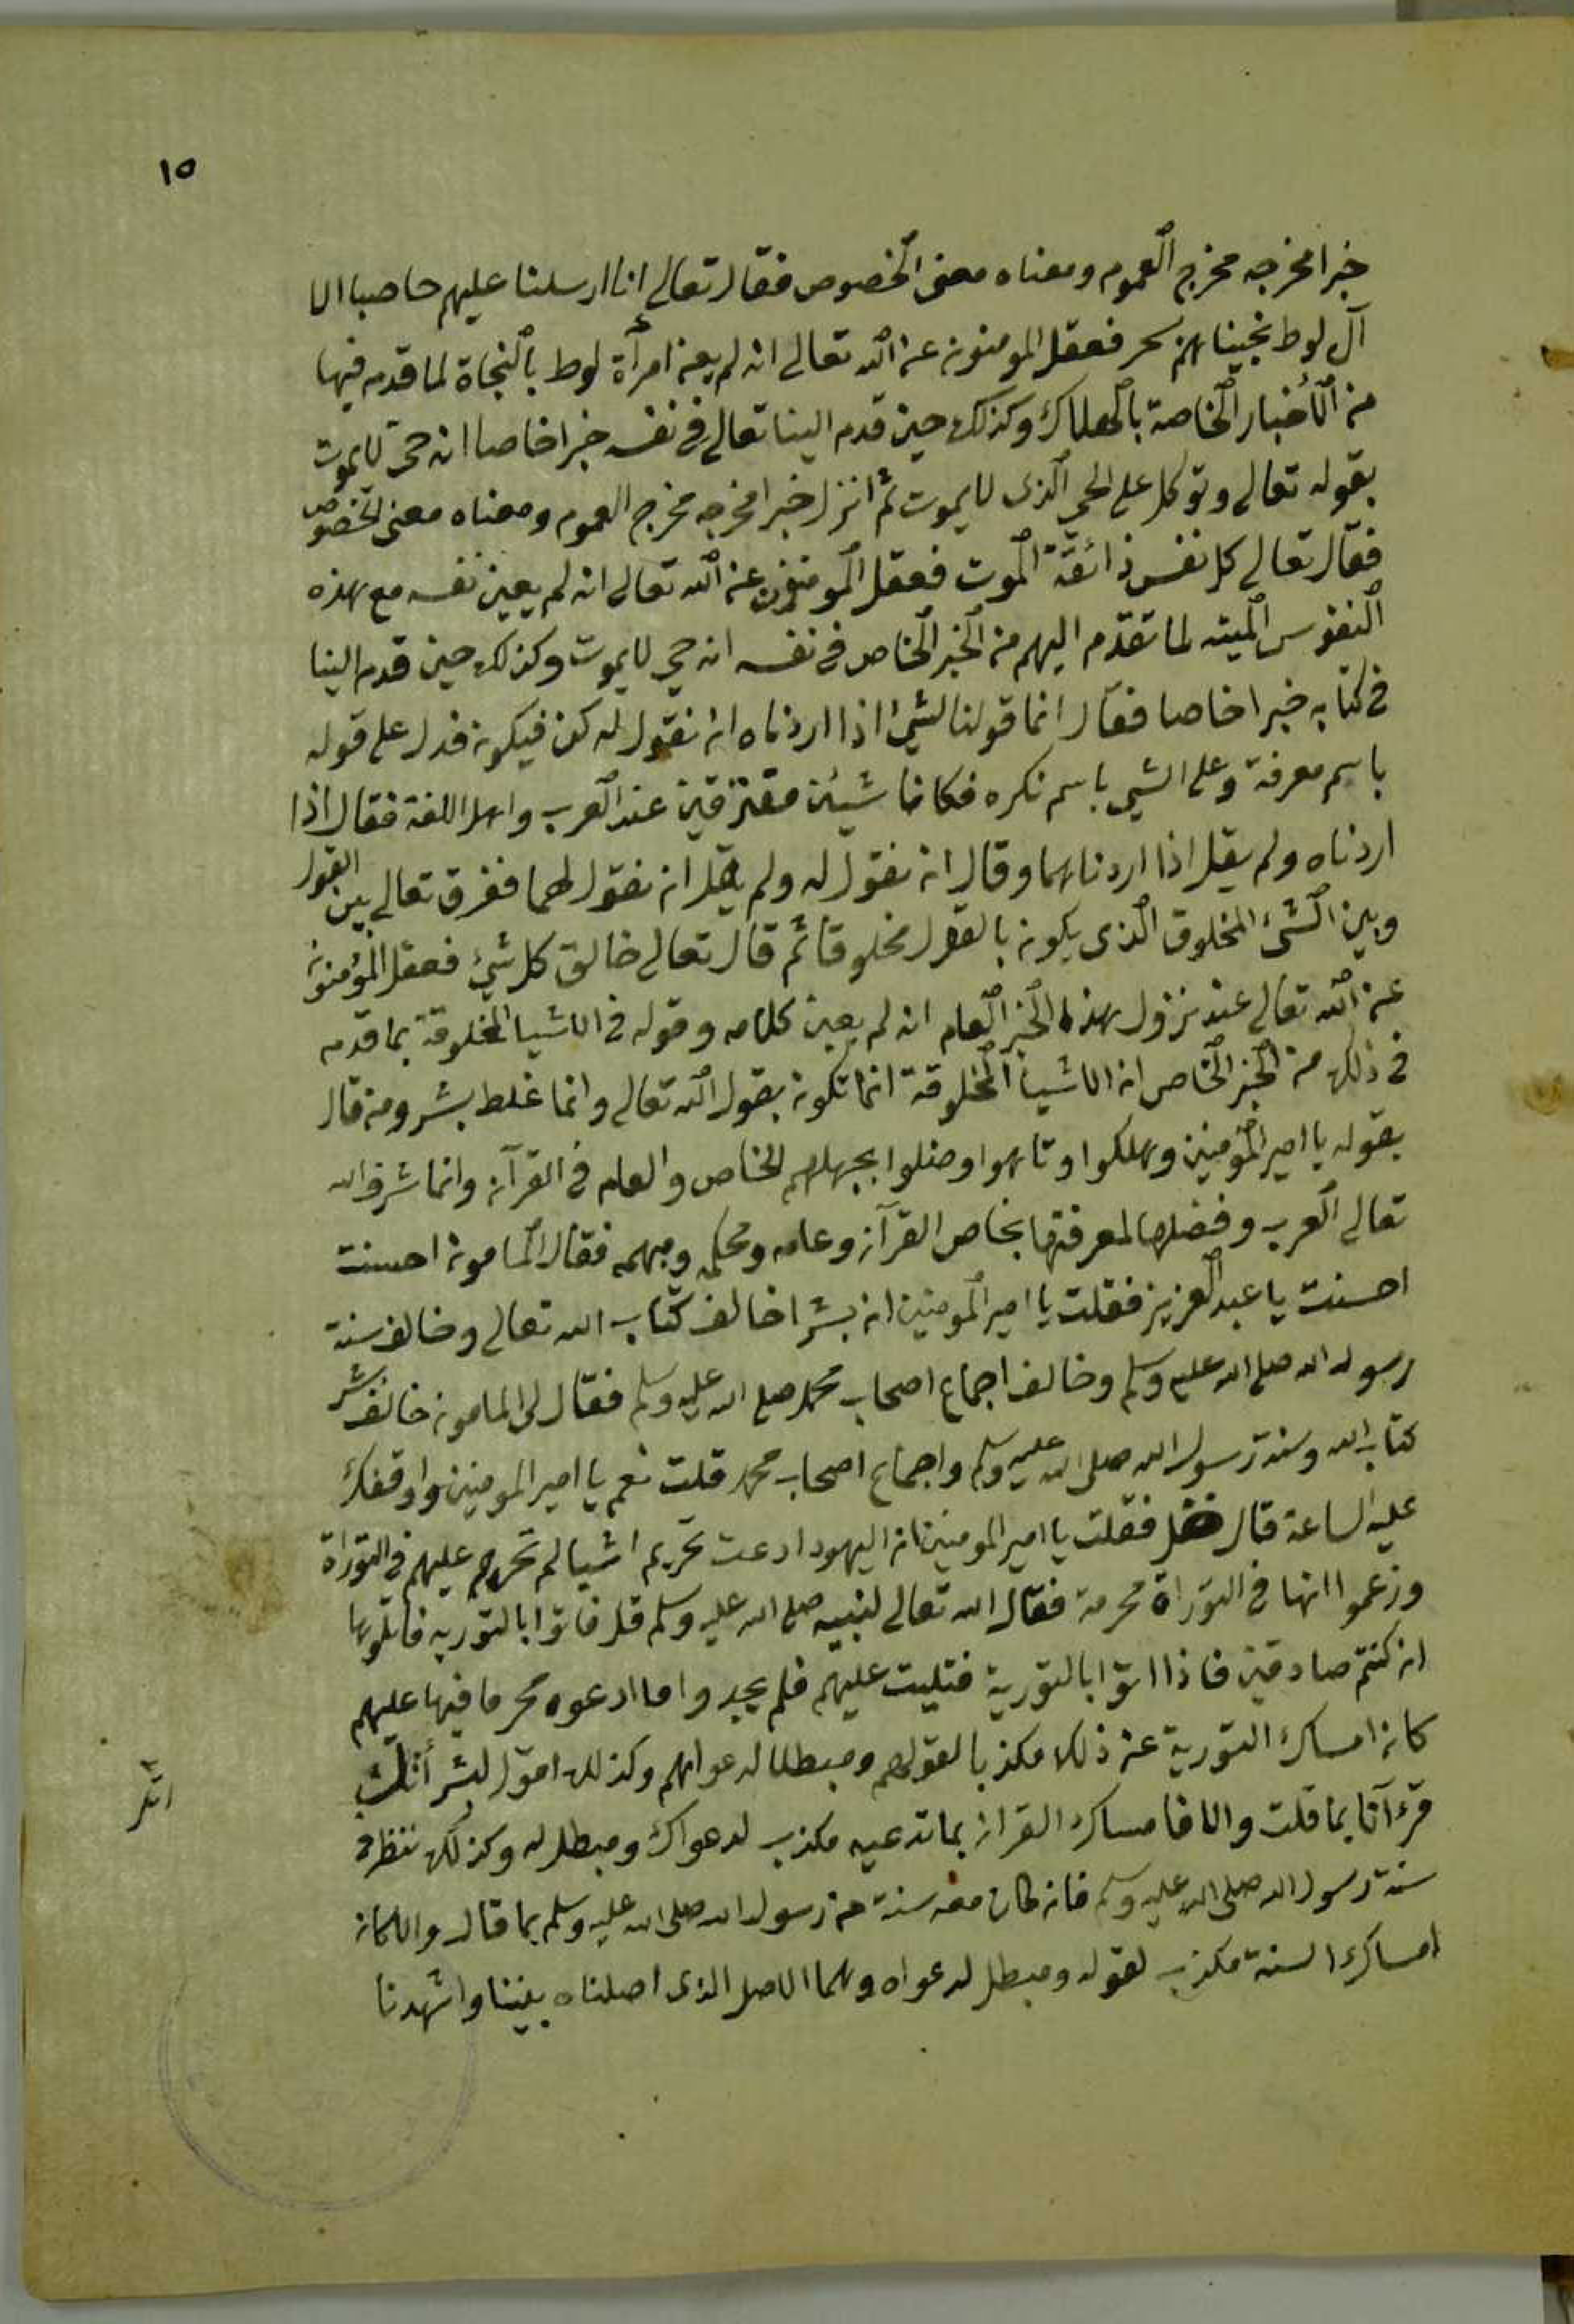 ١٥
خبرا مخرجه مخرج العموم ومعناه معنى الخصوص فقال تعالى انا ارسلنا عليهم حاصبا الا
آل لوط نجيناهم بسحر فعقل المومنون عن الله تعالى انه لم يعن امرأة لوط بالنجاة لما قدم فيها
من الأخبار الخاصة بالهلاك وكذلك حين قدم الينا تعالى في نفسه خبرا خاصا انه حي لايموت
بقوله تعالى وتوكل على الحي الذى لايموت ثم انزل خبرا مخرجه مخرج العموم ومعناه معنى الخصوص
فقال تعالى كل نفس ذائقة الموت فعقل المومنون عن الله تعالى انه لم يعين نفسه مع هذه
النفوس الميته لما تقدم اليهم من الخبر الخاص في نفسه انه حي لايموت وكذلك حين قدم الينا
في كتابه خبرا خاصا فقال انما قولنا لشئ اذا اردناه ان نقول له كن فيكون فدل على قوله
باسم معرفة وعلى الشي باسم نكره فكانا شيئين مفترقين عند العرب واهل اللغة فقال اذا
اردناه ولم يقل اذا اردناهما وقال ان نقول له ولم يقل ان نقول لهما ففرق تعالى بين القول
وبين الشئ المخلوق الذى يكون بالقول مخلوقا ثم قال تعالى خالق كل شئ فعقل المؤمنون
عن الله تعالى عند نزول هذا الخبر العام انه لم يعين كلامه وقوله في الاشيا المخلوقة بما قدم
في ذلك من الخبر الخاص ان الاشيا المخلوقة انما تكون بقول الله تعالى وانما غلط بشر ومن قال
بقوله يا امير المؤمنين وهلكوا وتاهوا وضلوا بجهلهم الخاص والعام في القرآن وانما شرف الله
تعالى العرب وفضلها لمعرفتها بخاص القرآن وعامه ومحكمه ومبهمه فقال المامون احسنت
احسنت يا عبد العزيز فقلت يا امير المومنين ان بشرا خالف كتاب الله تعالى وخالف سنة
رسول الله صلى الله عليه وسلم وخالف اجماع اصحاب محمد صلى الله عليه وسلم فقال لى المامون خالف بشر
كتاب الله وسنة رسول الله صلى الله عليه وسلم واجماع اصحاب محمد قلت نعم يا امير المومنين واوقفك
عليه الساعة قال فقل فقلت يا امير المومنين ان اليهود ادعت تحريم اشيا لم تحرم عليهم في التوراة
وزعموا انها في التوراة محرمة فقال الله تعالى لنبيه صلى الله عليه وسلم قل فاتوا بالتورية فاتلوها
ان كنتم صادقين فاذا اتوا بالتورية فتليت عليهم فلم يجدوا ما ادعوه محرما فيها عليهم
كان امساك التورية عن ذلك مكذبا لقولهم ومبطلا لدعواهم وكذلك اقول لبشر أتلُ
قرءآنا بما قلت والا فامساك القران بما تدعيه مكذب لدعواك ومبطل له وكذلك ننظر في
سنة رسول الله صلى الله عليه وسلم فان كان معه سنة من رسول الله صلى الله عليه وسلم بما قال والا كان
امساك السنة مكذب لقوله ومبطل لدعواه وهما الاصل الذى اصلناه بيننا واشهدنا